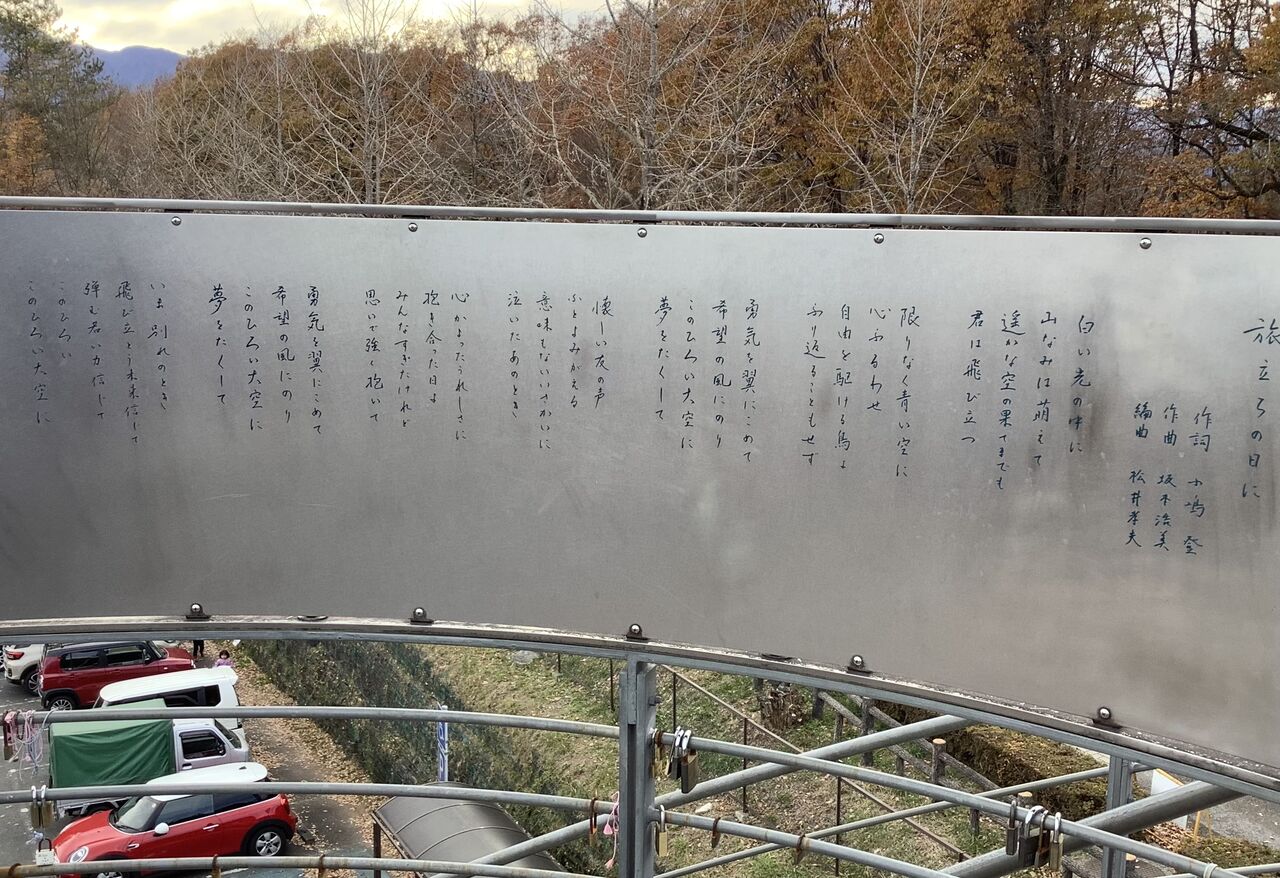 旅立ちの日に
作詞 小嶋 登
作曲 坂本浩美
編曲 松井孝夫
白い光の中に
山なみは萌えて
遥かな空の果てまでも
君は飛び立つ
限りなく青い空に
心ふるわせ
自由を駆ける鳥よ
ふり返ることもせず
勇気を翼にこめて
希望の風にのり
このひろい大空に
夢をたくして
懐しい友の声
ふとよみがえる
意味もないいさかいに
泣いたあのとき
心かよったうれしさに
抱き合った日よ
みんなすぎたけれど
思いで強く抱いて
勇気を翼にこめて
希望の風にのり
このひろい大空に
夢をたくして
いま 別れのとき
飛び立とう未来信じて
弾む若い力信じて
このひろい
このひろい大空に